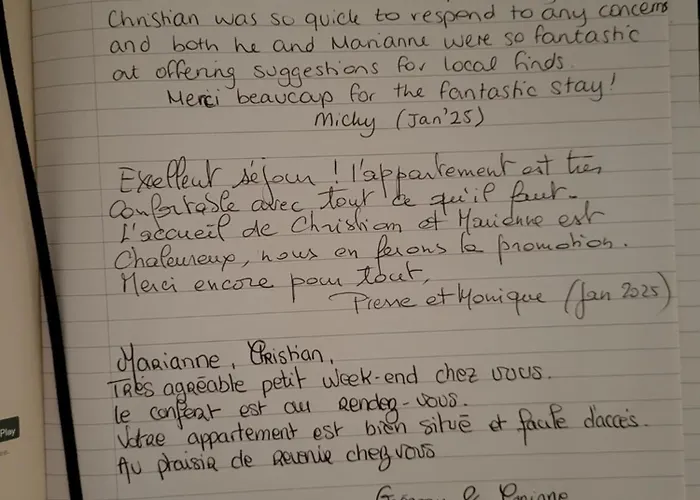 Christian was so quick to respond to any concerns
and both he and Marianne were so fantastic
at offering suggestions for local finds.
Merci beaucoup for the fantastic stay!
Micky (Jan'25)
Exellent séjour ! l'appartement est très
Confortable avec tout ce qu'il faut.
L'accueil de Christian et Marianne est
Chaleureux, nous en ferons la promotion.
Merci encore pour tout,
Pierre et Monique (Jan 2025)
Marianne, Christian,
Très agréable petit week-end chez vous.
le confort est au rendez-vous.
Votre appartement est bien situé et facile d'accès.
Au plaisir de revenir chez vous
Play